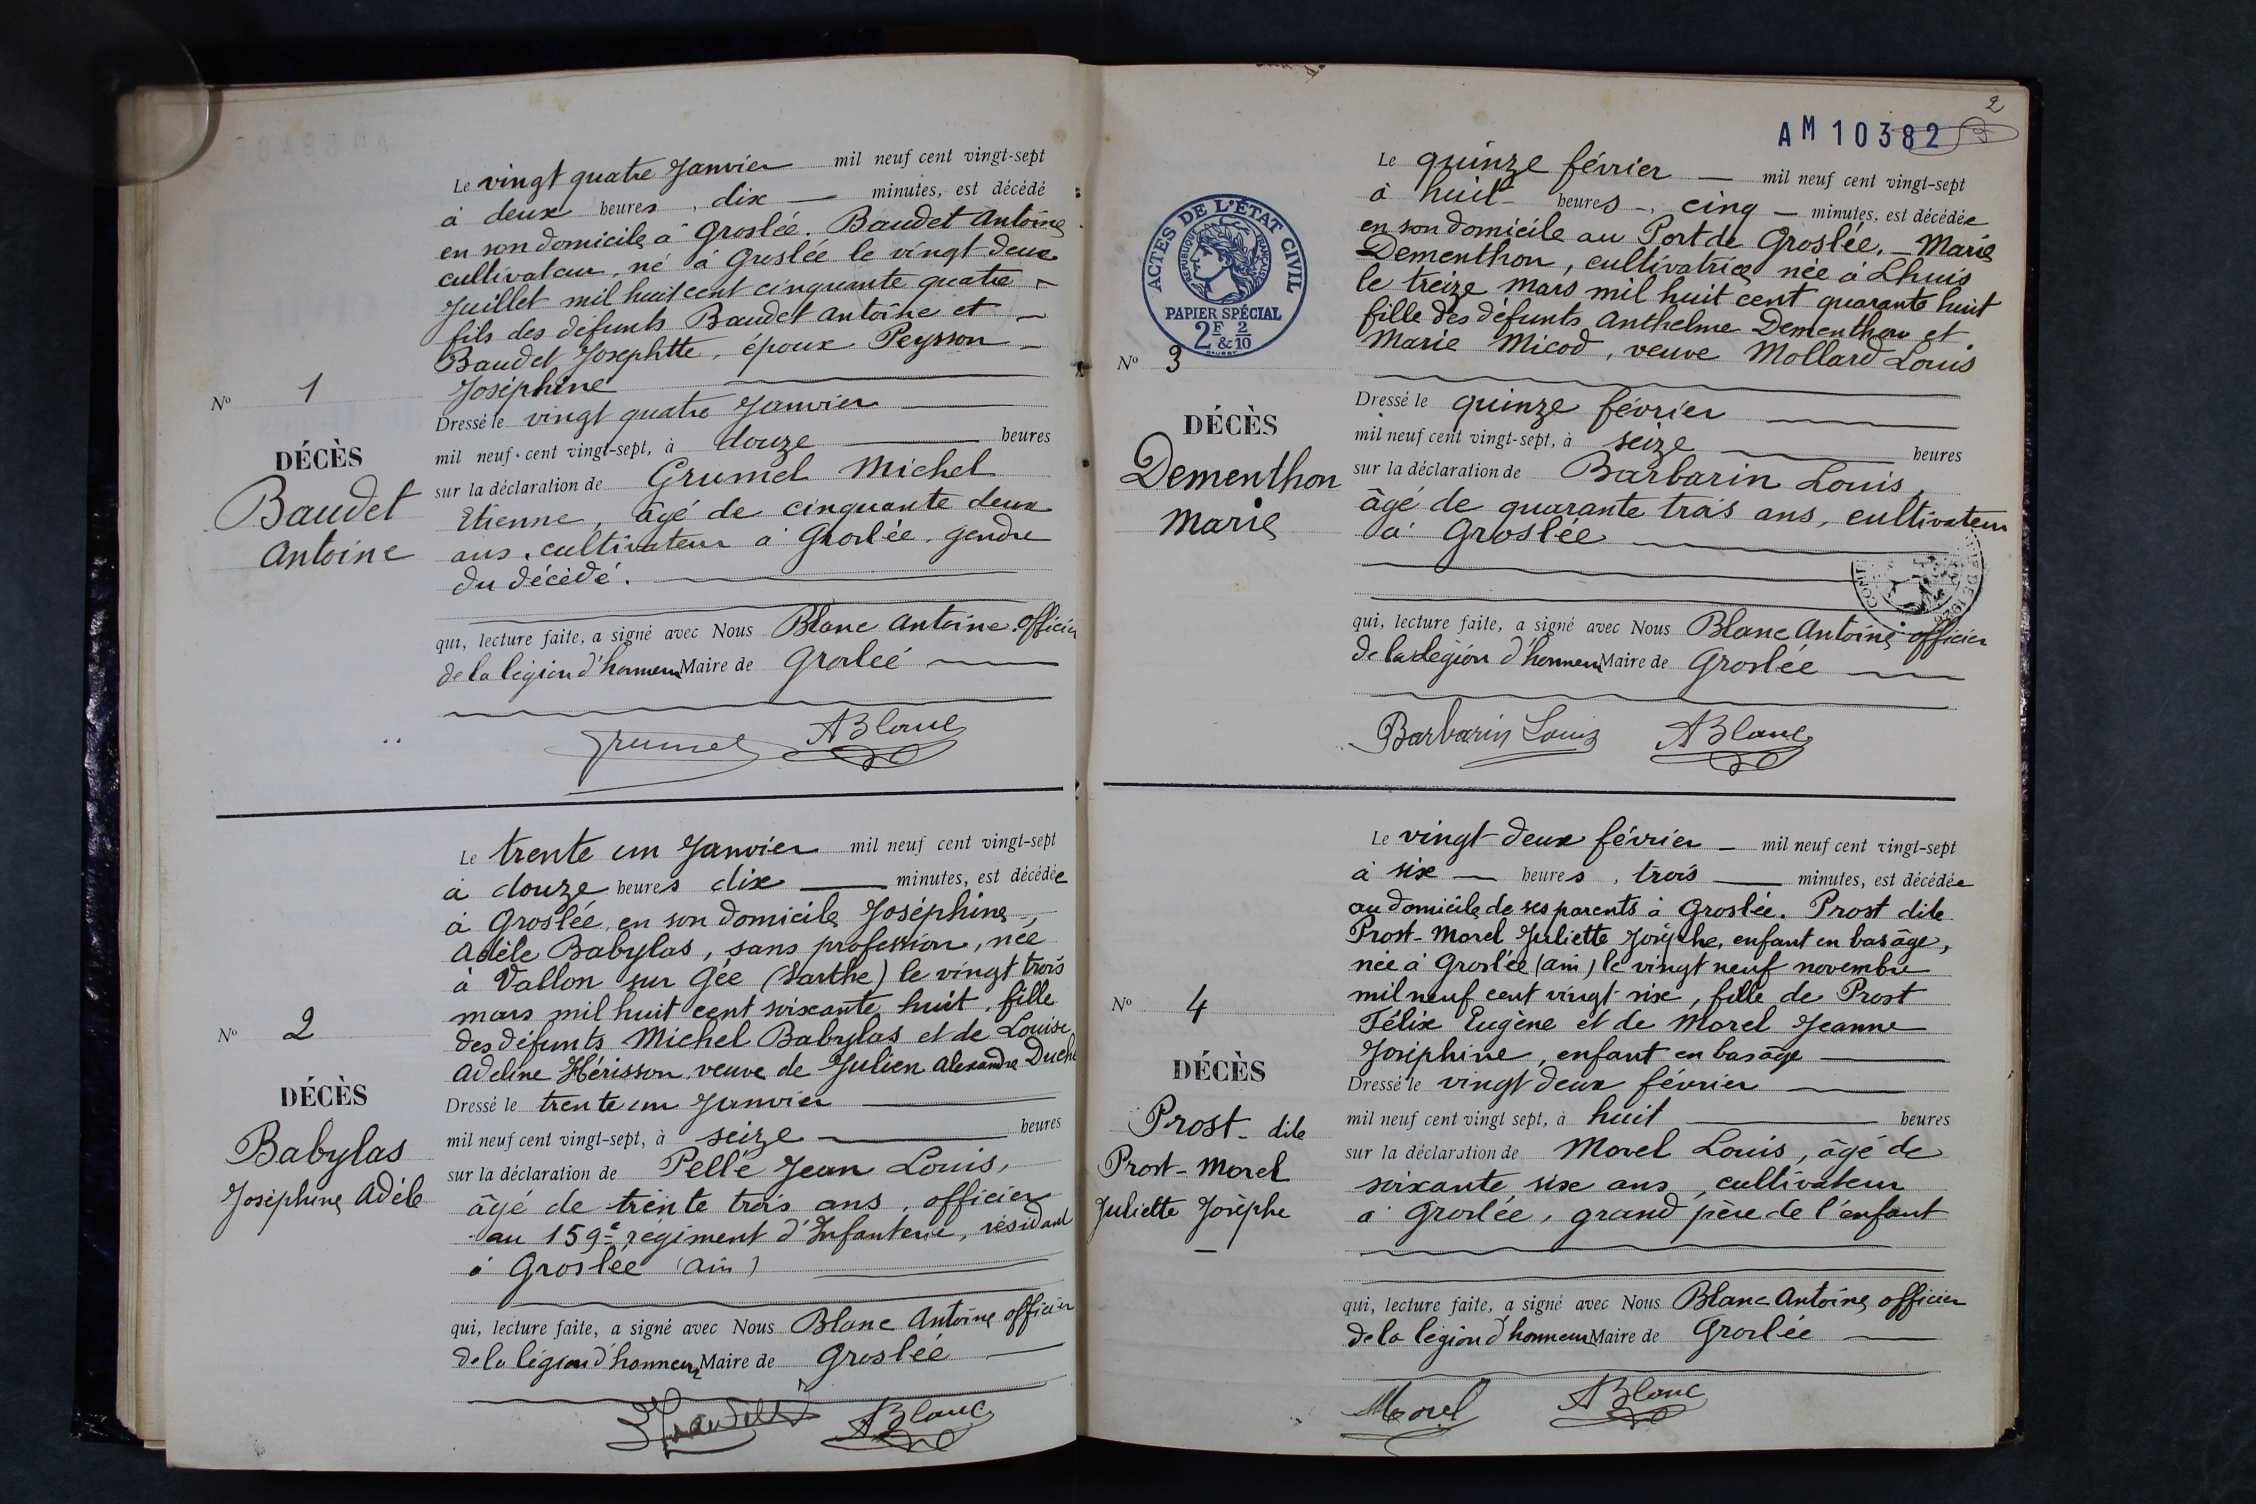 Le vingt quatre Janvier mil neuf cent vingt-sept
à deux heures, dix minutes, est décédé
en son domicile à Groslée. Baudet Antoine
cultivateur, né à Groslée le vingt deux
Juillet mil huit cent cinquante quatre
fils des défunts Baudet Antoine et
Baudet Josephtte, époux Peysson
Joséphine
N° 1
Dressé le vingt quatre Janvier
mil neuf cent vingt-sept, à douze heures
DÉCÈS
Baudet
Antoine
sur la déclaration de Grumel Michel
Etienne, âgé de cinquante deux
ans, cultivateur à Groslée. gendre
du décédé.
qui, lecture faite, a signé avec Nous Blanc Antoine. officier
de la légion d'honneur Maire de Groslée
Grumel ABlanc
Le trente un Janvier mil neuf cent vingt-sept
à douze heures dix minutes, est décédée
à Groslée en son domicile Joséphine,
Adèle Babylas, sans profession, née
à Vallon sur Gée (Sarthe) le vingt trois
mars mil huit cent soixante huit, fille
des défunts Michel Babylas et de Louise
Adeline Hérisson veuve de Julien Alexandre
N° 2
DÉCÈS
Babylas
Joséphine Adèle
Dressé le trente un Janvier
mil neuf cent vingt-sept, à seize heures
sur la déclaration de Pellé Jean Louis,
âgé de trente trois ans, officier
au 159e régiment d'Infanterie, résidant
à Groslée (Ain)
qui, lecture faite, a signé avec Nous Blanc Antoine officier
de la légion d'honneur Maire de Groslée
ABlanc
2
AM 10382
ACTES DE L'ÉTAT CIVIL
RÉPUBLIQUE FRANÇAISE
PAPIER SPÉCIAL
2F & 2/10
Le quinze février mil neuf cent vingt-sept
à huit heures, cinq minutes, est décédée
en son domicile au Port de Groslée, Marie
Dementhon, cultivatrice née à Lhuis
le treize mars mil huit cent quarante huit
fille des défunts Anthelme Dementhon et
Marie Micod, veuve Mollard Louis
N° 3
DÉCÈS
Dementhon
Marie
Dressé le quinze février
mil neuf cent vingt-sept, à seize heures
sur la déclaration de Barbarin Louis,
âgé de quarante trois ans, cultivateur
à Groslée
qui, lecture faite, a signé avec Nous Blanc Antoine officier
de la légion d'honneur Maire de Groslée
Barbarin Louis ABlanc
Le vingt-deux février mil neuf cent vingt-sept
à six heures, trois minutes, est décédée
au domicile de ses parents à Groslée. Prost dite
Prost-Morel Juliette Josèphe, enfant en bas âge,
née à Groslée (Ain) le vingt neuf novembre
mil neuf cent vingt six, fille de Prost
Félix Eugène et de Morel Jeanne
Joséphine, enfant en bas âge
N° 4
DÉCÈS
Prost dite
Prost-Morel
Juliette Josèphe
Dressé le vingt deux février
mil neuf cent vingt sept, à huit heures
sur la déclaration de Morel Louis, âgé de
soixante six ans, cultivateur
à Groslée, grand père de l'enfant
qui, lecture faite, a signé avec Nous Blanc Antoine officier
de la légion d'honneur Maire de Groslée
Morel ABlanc